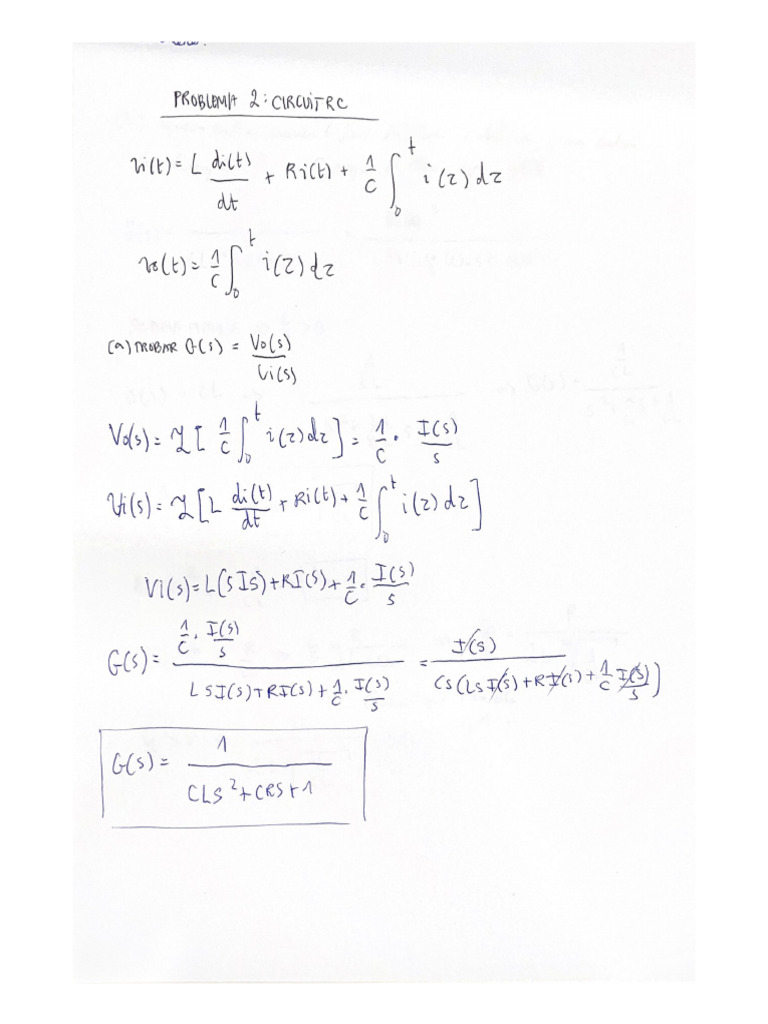 PROBLEMA 2: CIRCUIT RC
vi(t) = L di(t)/dt + Ri(t) + 1/C ∫₀ᵗ i(τ) dτ
vo(t) = 1/C ∫₀ᵗ i(τ) dτ
(a) TROBAR G(s) = Vo(s)/Vi(s)
Vo(s) = ℒ[1/C ∫₀ᵗ i(τ) dτ] = 1/C · I(s)/s
Vi(s) = ℒ[L di(t)/dt + Ri(t) + 1/C ∫₀ᵗ i(τ) dτ]
Vi(s) = L(sIs) + RI(s) + 1/C · I(s)/s
G(s) = (1/C · I(s)/s)/(LsI(s) + RI(s) + 1/C · I(s)/s) = I(s)/(Cs(LsI(s) + RI(s) + 1/C I(s)/s))
G(s) = 1/(CLs² + CRs + 1)